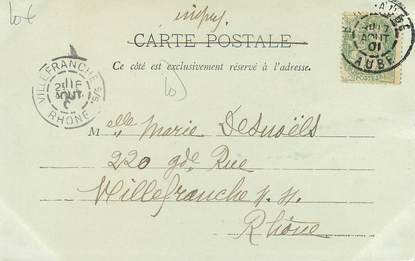 10€
CARTE POSTALE
Ce côté est exclusivement réservé à l'adresse.
VILLEFRANCHE S/S
AOUT
RHONE
AOUT
01
AUBE
POSTES
Melle Marie Desnoëls
220 gde Rue
Villefranche s. S.
Rhône